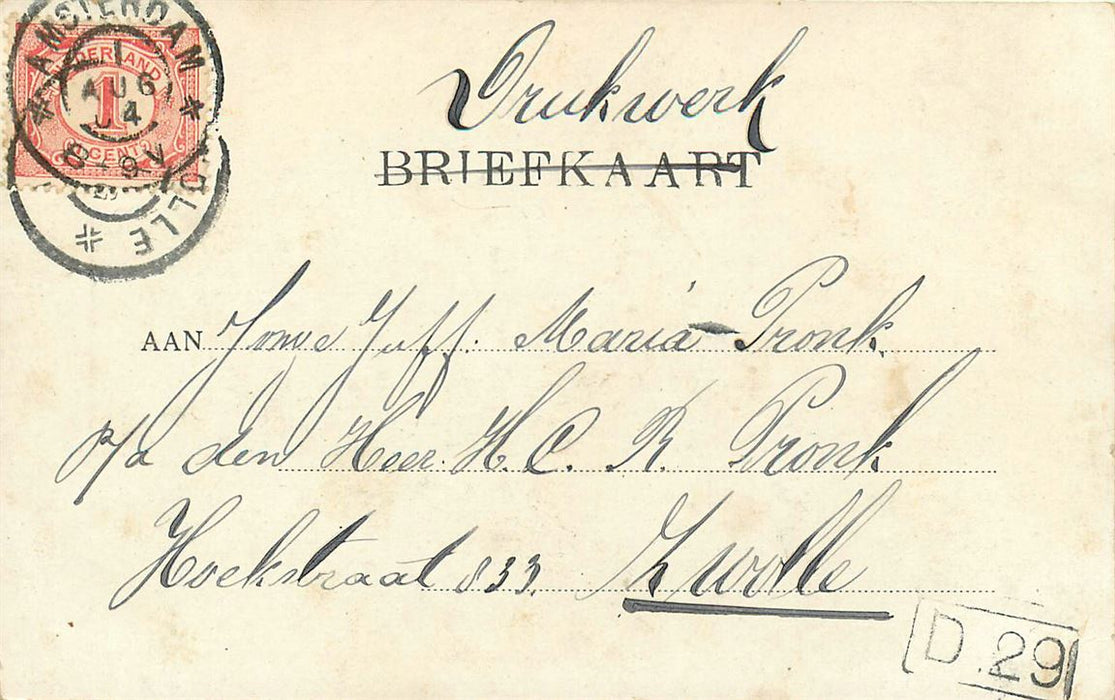 AMSTERDAM
NEDERLAND
1
AUG
04
1
CENT
8-9V
Drukwerk
BRIEFKAART
AAN Jonge Juff. Maria Pronk.
p/a den Heer H. C. R. Pronk
Hoekstraat 833. Zwolle
D. 29